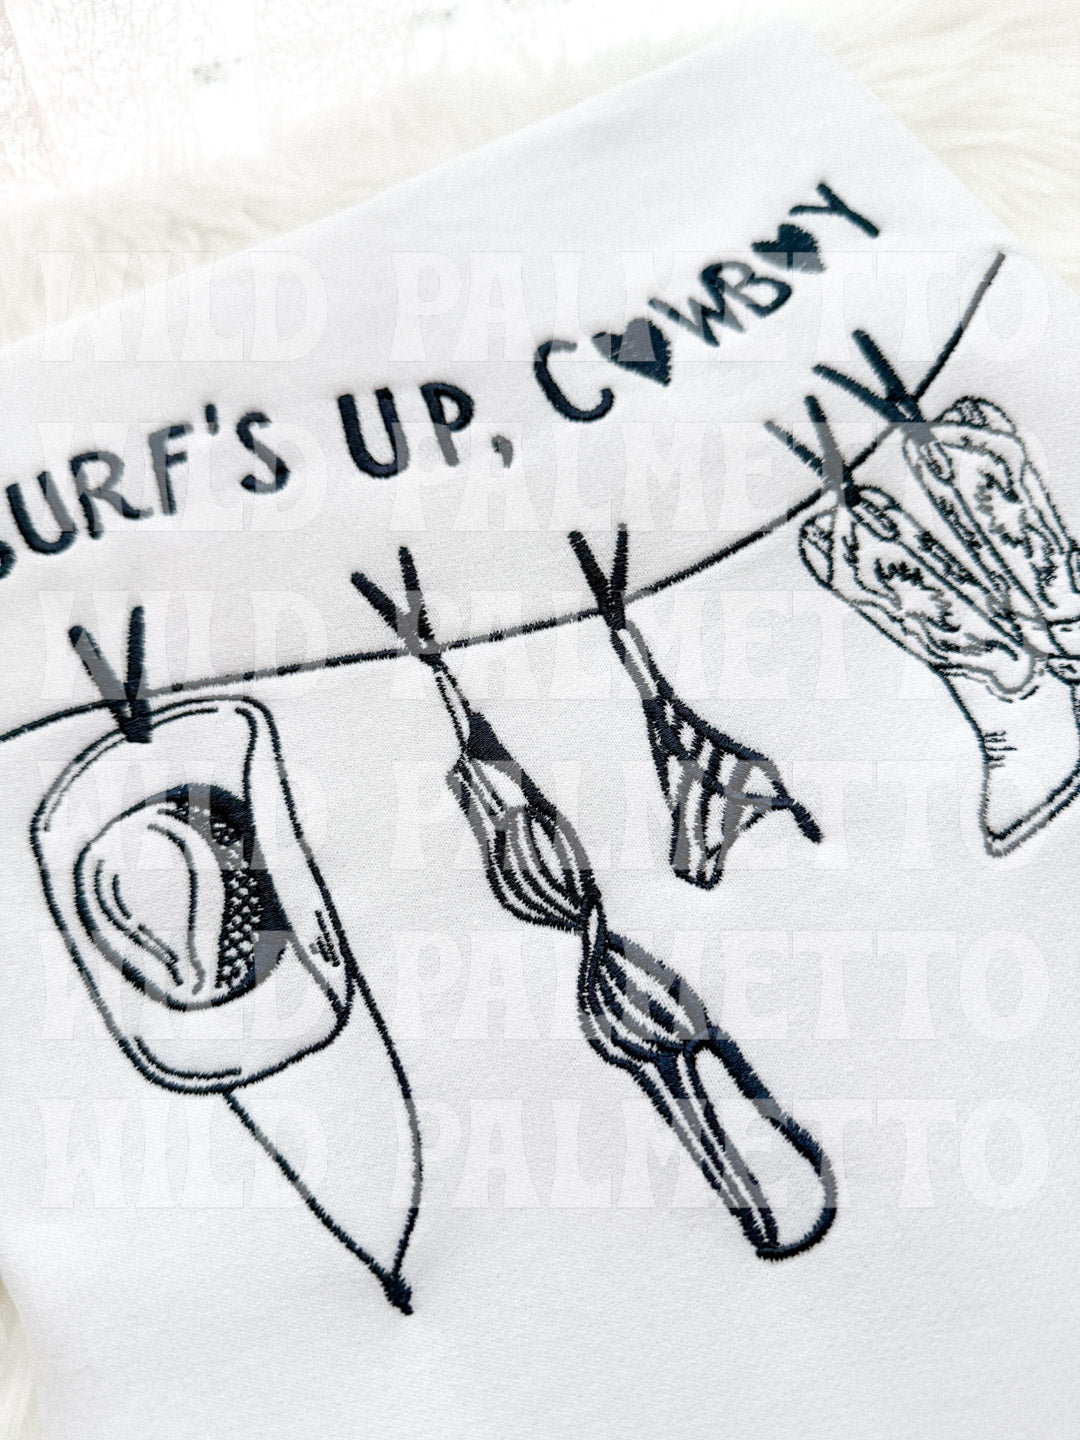 SURF'S UP, C♥WB♥Y
WILD PALMETTO
WILD PALMETTO
WILD PALMETTO
WILD PALMETTO
WILD PALMETTO
WILD PALMETTO